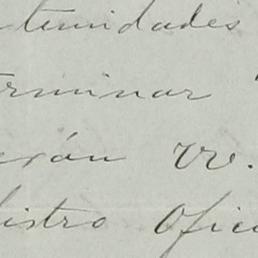 tenidades
terminar
erán VV.
istro Ofici